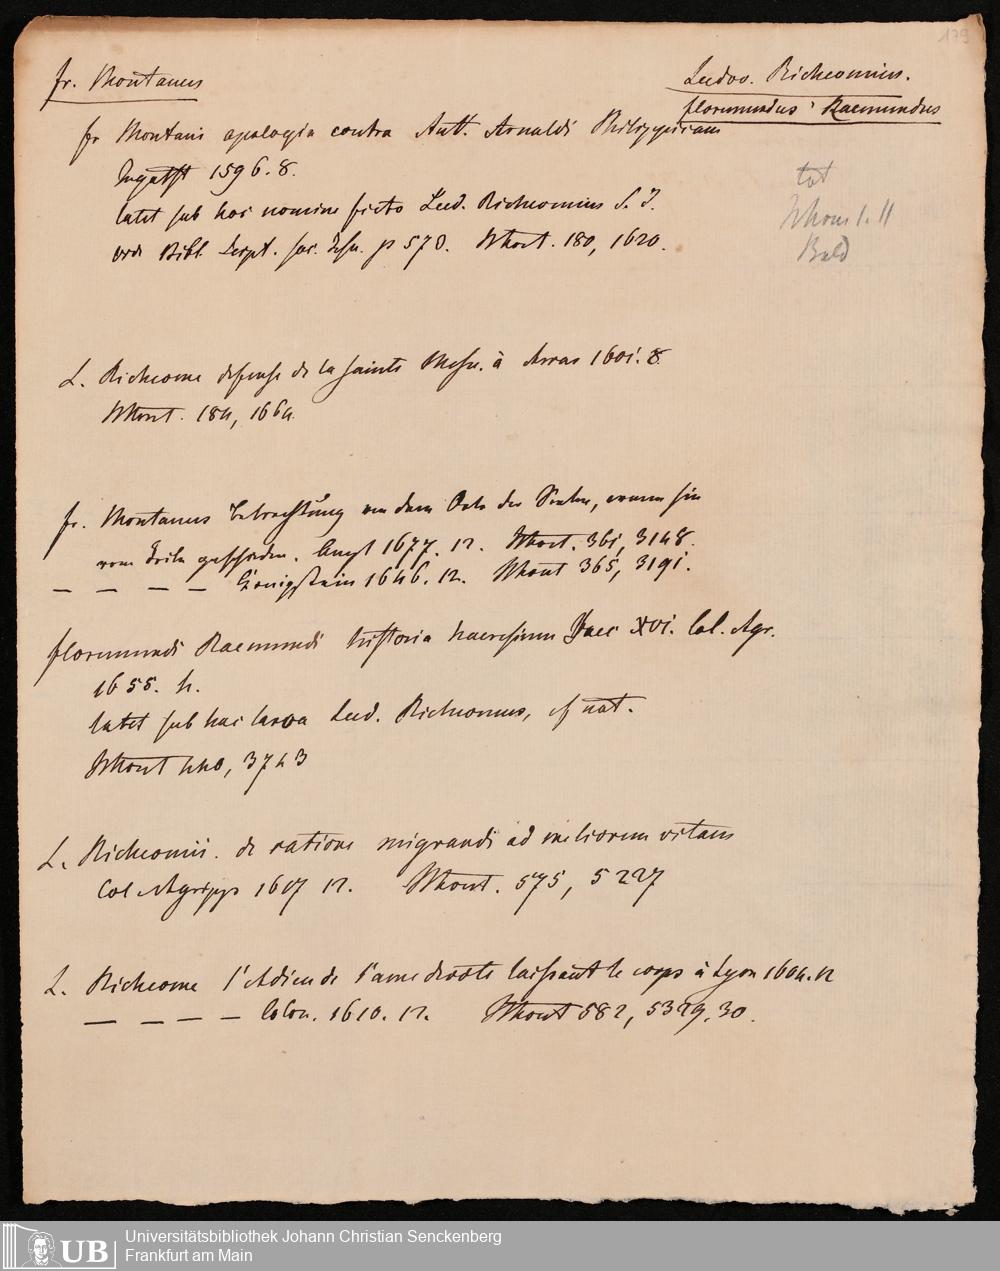 179
fr. Montanus
Ludov. Richeomius.
florimundus Raemundus
fr Montani apologia contra Ant. Arnaldi Philippicam
Ingolst 1596. 8.
latet sub hoc nomine ficto Lud. Richeomius S. J.
vid. Bibl. Script. soc. Jesu. p 570. 180, 1620.
tot
Bald
L. Richeome defense de la sainte Messe. à Arras 1601. 8
184, 1664
fr. Montanus Betrachtung von dem Orte der Seelen, wenn sie
vom Leibe geschieden. Augs 1677. 12. 361, 3148.
— — — — Königstein 1646. 12. 365, 3191.
florimundi Raemundi historia haeresium Saec XVI. Col. Agr.
1655. 4.
latet sub hac larva Lud. Richeomus, cf not.
440, 3743
L. Richeomii. de ratione migrandi ad meliorem vitam
Col Agripp 1607 12. 575, 5227
L. Richeome l'Adieu de l'ame devote laissant le corps à Lyon 1604. 12
— — — — Colon. 1610. 12. 582, 5329. 30.
UB
Universitätsbibliothek Johann Christian Senckenberg
Frankfurt am Main